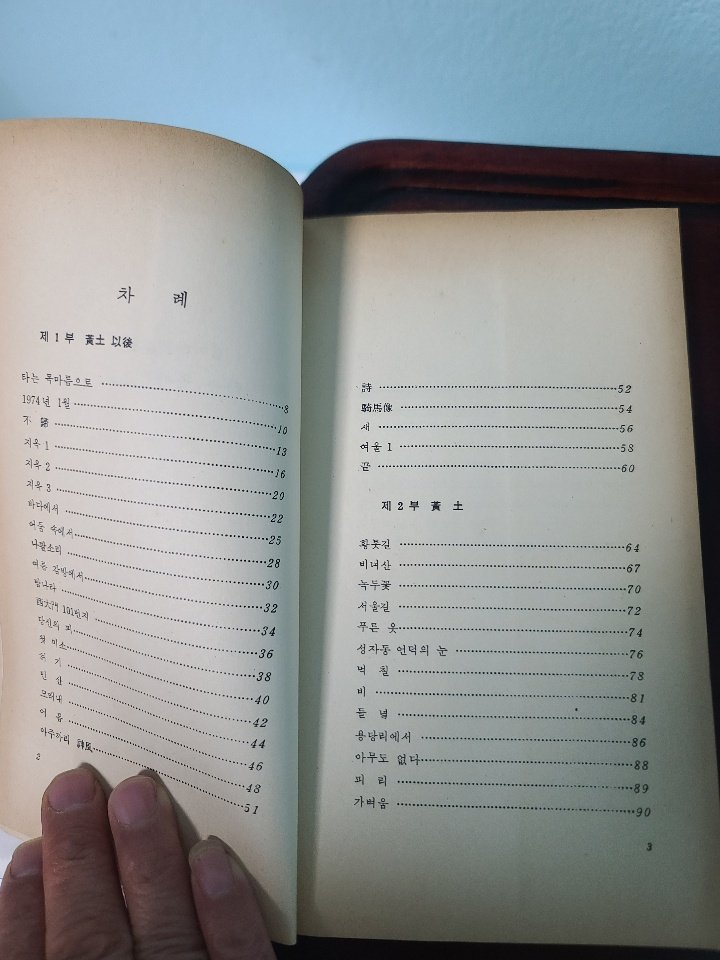 차 례
제 1 부 黃土 以後
타는 목마름으로 8
1974년 1월 10
不 歸 13
지옥 1 16
지옥 2 20
지옥 3 22
바다에서 25
어둠 속에서 28
나팔소리 30
여름 감방에서 32
빈나라 34
西大門 101번지 36
당신의 피 38
헛 미소 40
기 42
빈 산 44
모래내 46
어 름 48
아주까리 神風 51
2
詩 52
騎馬像 54
새 56
여울 1 58
끝 60
제 2 부 黃 土
황톳길 64
비녀산 67
녹두꽃 70
서울길 72
푸른 옷 74
성자동 언덕의 눈 76
벽 칠 78
비 81
들 녘 84
용당리에서 86
아무도 없다 88
피 리 89
가벼움 90
3